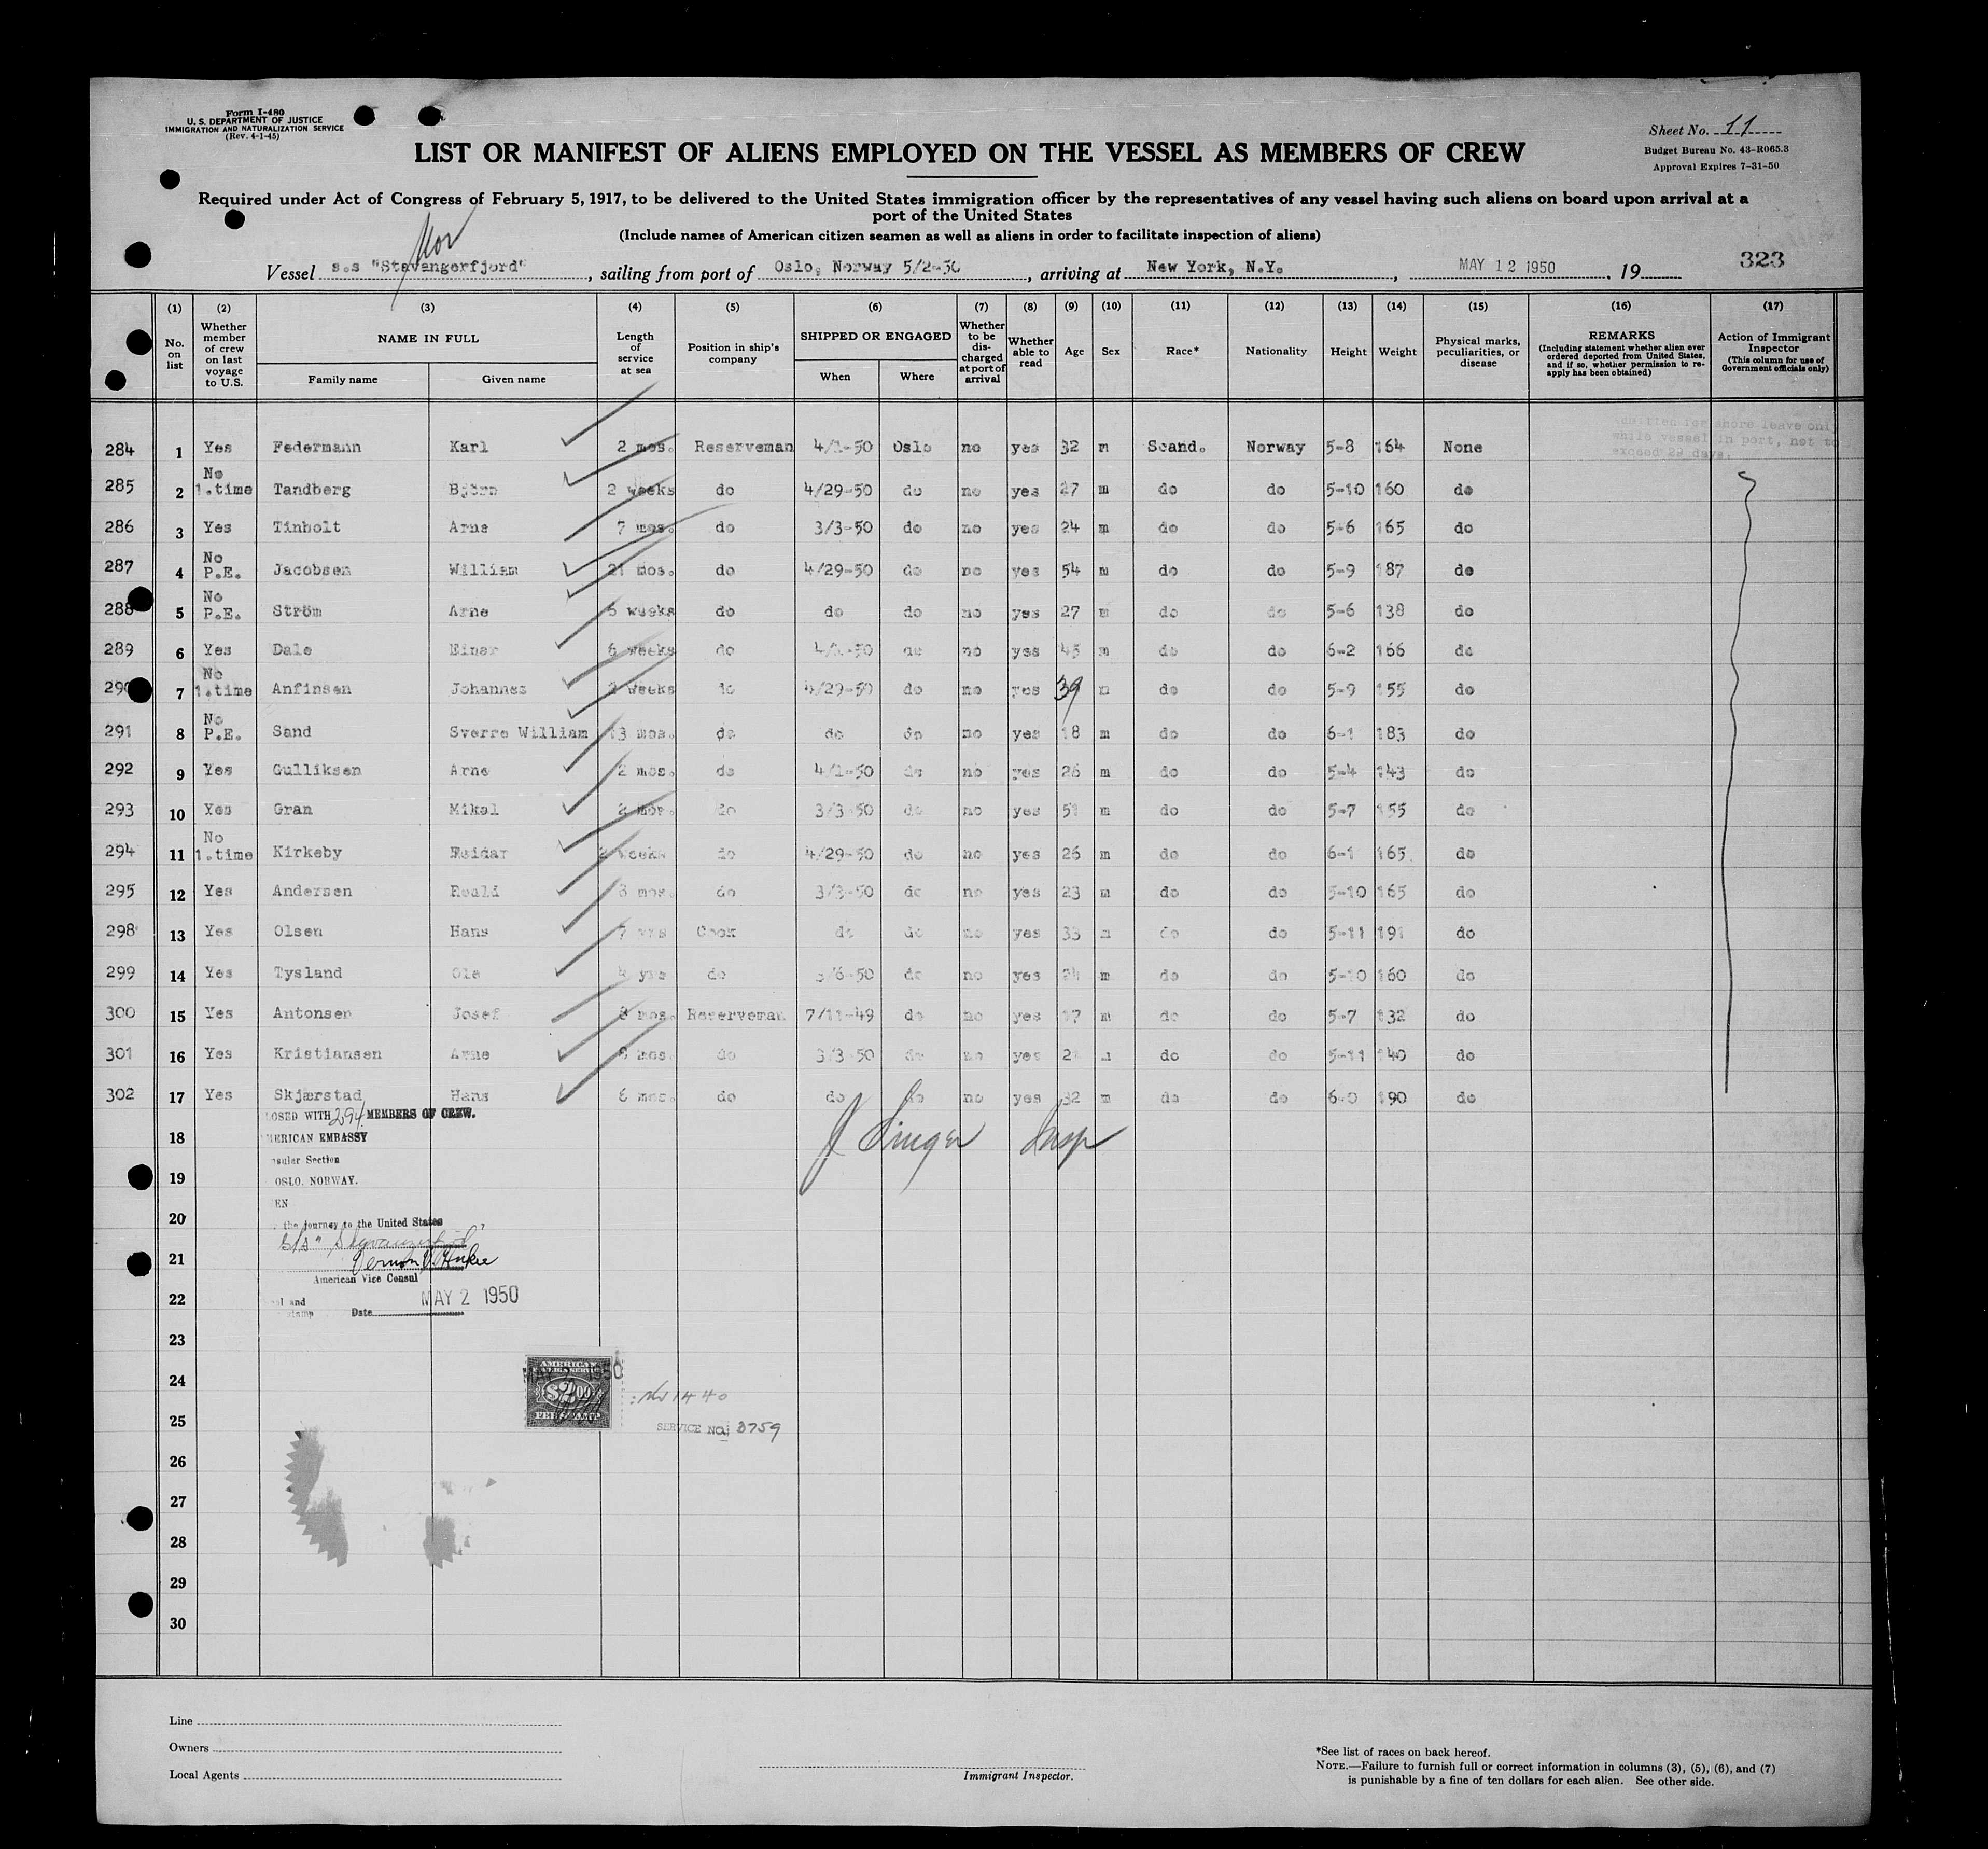 Form I-480
U. S. DEPARTMENT OF JUSTICE
IMMIGRATION AND NATURALIZATION SERVICE
(Rev. 4-1-45)
Sheet No. 11
Budget Bureau No. 43-R065.3
Approval Expires 7-31-50
LIST OR MANIFEST OF ALIENS EMPLOYED ON THE VESSEL AS MEMBERS OF CREW
Required under Act of Congress of February 5, 1917, to be delivered to the United States immigration officer by the representatives of any vessel having such aliens on board upon arrival at a
port of the United States
(Include names of American citizen seamen as well as aliens in order to facilitate inspection of aliens)
Nor
Vessel s.s "Stavangerfjord", sailing from port of Oslo, Norway 5/2-50, arriving at New York, N.Y., MAY 12 1950, 19
323
(1) (2) (3) (4) (5) (6) (7) (8) (9) (10) (11) (12) (13) (14) (15) (16) (17)
No. on list
Whether member of crew on last voyage to U.S.
NAME IN FULL
Family name Given name
Length of service at sea
Position in ship's company
SHIPPED OR ENGAGED
When Where
Whether to be discharged at port of arrival
Whether able to read
Age
Sex
Race*
Nationality
Height
Weight
Physical marks, peculiarities, or disease
REMARKS
(Including statement whether alien ever ordered deported from United States, and if so, whether permission to re-apply has been obtained)
Action of Immigrant Inspector
(This column for use of Government officials only)
Admitted for shore leave only
while vessel in port, not to
exceed 29 days.
284 1 Yes Federmann Karl 2 mos. Reserveman 4/1-50 Oslo no yes 32 m Scand. Norway 5-8 164 None
285 2 No 1.time Tandberg Björn 2 weeks do 4/29-50 do no yes 27 m do do 5-10 160 do
286 3 Yes Tinholt Arne 7 mos. do 3/3-50 do no yes 24 m do do 5-6 165 do
287 4 No P.E. Jacobsen William 21 mos. do 4/29-50 do no yes 54 m do do 5-9 187 do
288 5 No P.E. Ström Arne 6 weeks do do do no yes 27 m do do 5-6 138 do
289 6 Yes Dale Einar 6 weeks do 4/1-50 do no yes 45 m do do 6-2 166 do
290 7 No 1.time Anfinsen Johannes 2 weeks do 4/29-50 do no yes 39 m do do 5-9 155 do
291 8 No P.E. Sand Sverre William 13 mos. do do do no yes 18 m do do 6-1 183 do
292 9 Yes Gulliksen Arne 2 mos. do 4/1-50 do no yes 26 m do do 5-4 143 do
293 10 Yes Gran Mikal 2 mos. do 3/3-50 do no yes 51 m do do 5-7 155 do
294 11 No 1.time Kirkeby Reidar 2 weeks do 4/29-50 do no yes 26 m do do 6-1 165 do
295 12 Yes Andersen Roald mos. do 3/3-50 do no yes 23 m do do 5-10 165 do
298 13 Yes Olsen Hans 7 yrs Cook do do no yes 33 m do do 5-11 191 do
299 14 Yes Tysland Ole 4 yrs do 3/6-50 do no yes 24 m do do 5-10 160 do
300 15 Yes Antonsen Josef 8 mos. Reserveman 7/11-49 do no yes 17 m do do 5-7 132 do
301 16 Yes Kristiansen Arne mos. do 3/3-50 do no yes 21 m do do 5-11 140 do
302 17 Yes Skjærstad Hans 6 mos. do do do no yes 32 m do do 6-0 190 do
OSED WITH 294 MEMBERS OF CREW.
18 ERICAN EMBASSY
J Singer Insp
nsular Section
19 OSLO. NORWAY.
EN
20 the journey to the United States
S/S "Stavangerfjord"
21
American Vice Consul
22 Date MAY 2 1950
23
24 AMERICAN
FEE STAMP
No 1440
25 SERVICE NO. 3759
26
27
28
29
30
Line
Owners
Local Agents
Immigrant Inspector.
*See list of races on back hereof.
NOTE.—Failure to furnish full or correct information in columns (3), (5), (6), and (7)
is punishable by a fine of ten dollars for each alien. See other side.